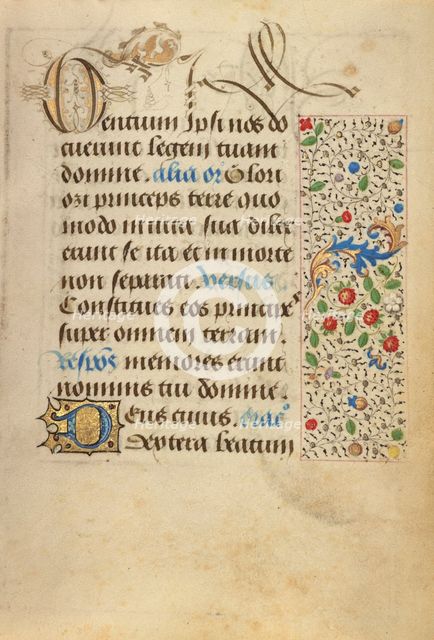 Oentium ipsi nos do
cuerunt legem tuam
domine. alia or Glori
ozi principes terre quo
modo in uita sua dilex
erunt se ita et in morte
non separati. Versus
Constitues eos principes
super omnem terram.
Respons memores erunt
nominis tui domine.
Deus cuius. orac°
dextera beatum